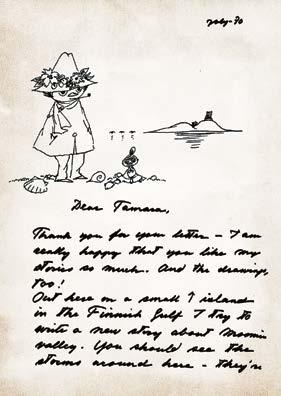 July-90
Dear Tamara,
Thank you for your letter – I am
really happy that you like my
stories so much. And the drawings,
too!
Out here on a small ↑ island
in the Finnish Gulf I try to
write a new story about Moomin
valley. You should see the
storms around here – they're